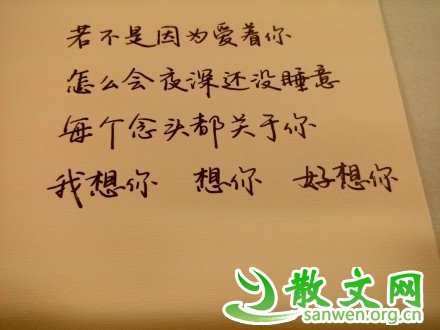 若不是因为爱着你
怎么会夜深还没睡意
每个念头都关于你
我想你 想你 好想你
散文网
sanwen.org.cn